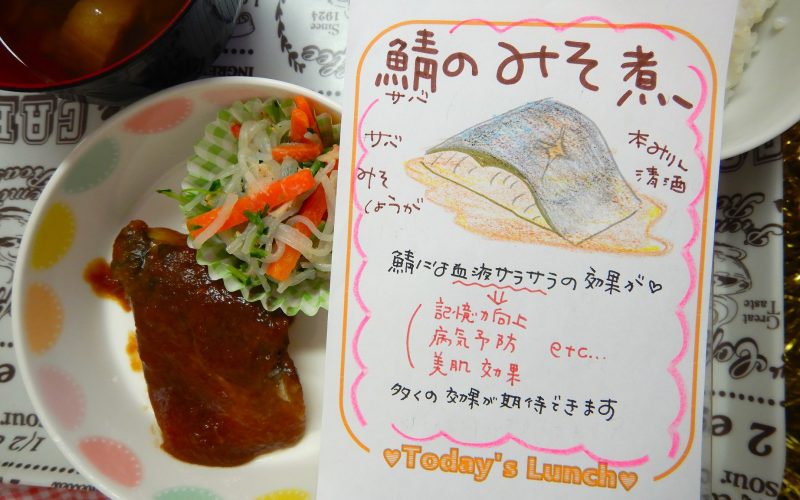 鯖のみそ煮
サバ
サバ
みそ
しょうが
本みりん
清酒
鯖には血液サラサラの効果が♡
記憶力向上
病気予防 etc...
美肌効果
多くの効果が期待できます
♥Today's Lunch♥
Since
1924
INGRE
CAF
Great
Taste
our
1/2
2 e